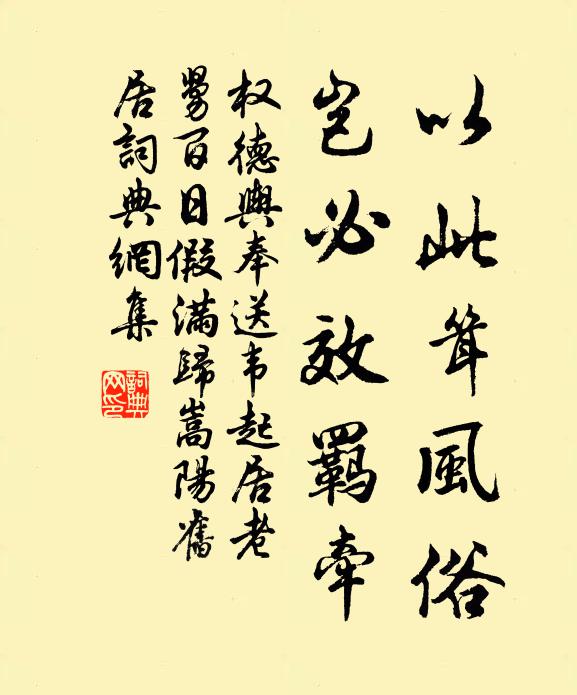 以此耸風俗
豈必效羈牽
权德輿奉送韦起居老
舅百日假滿歸嵩陽舊
居詞典網集
詞典
网印